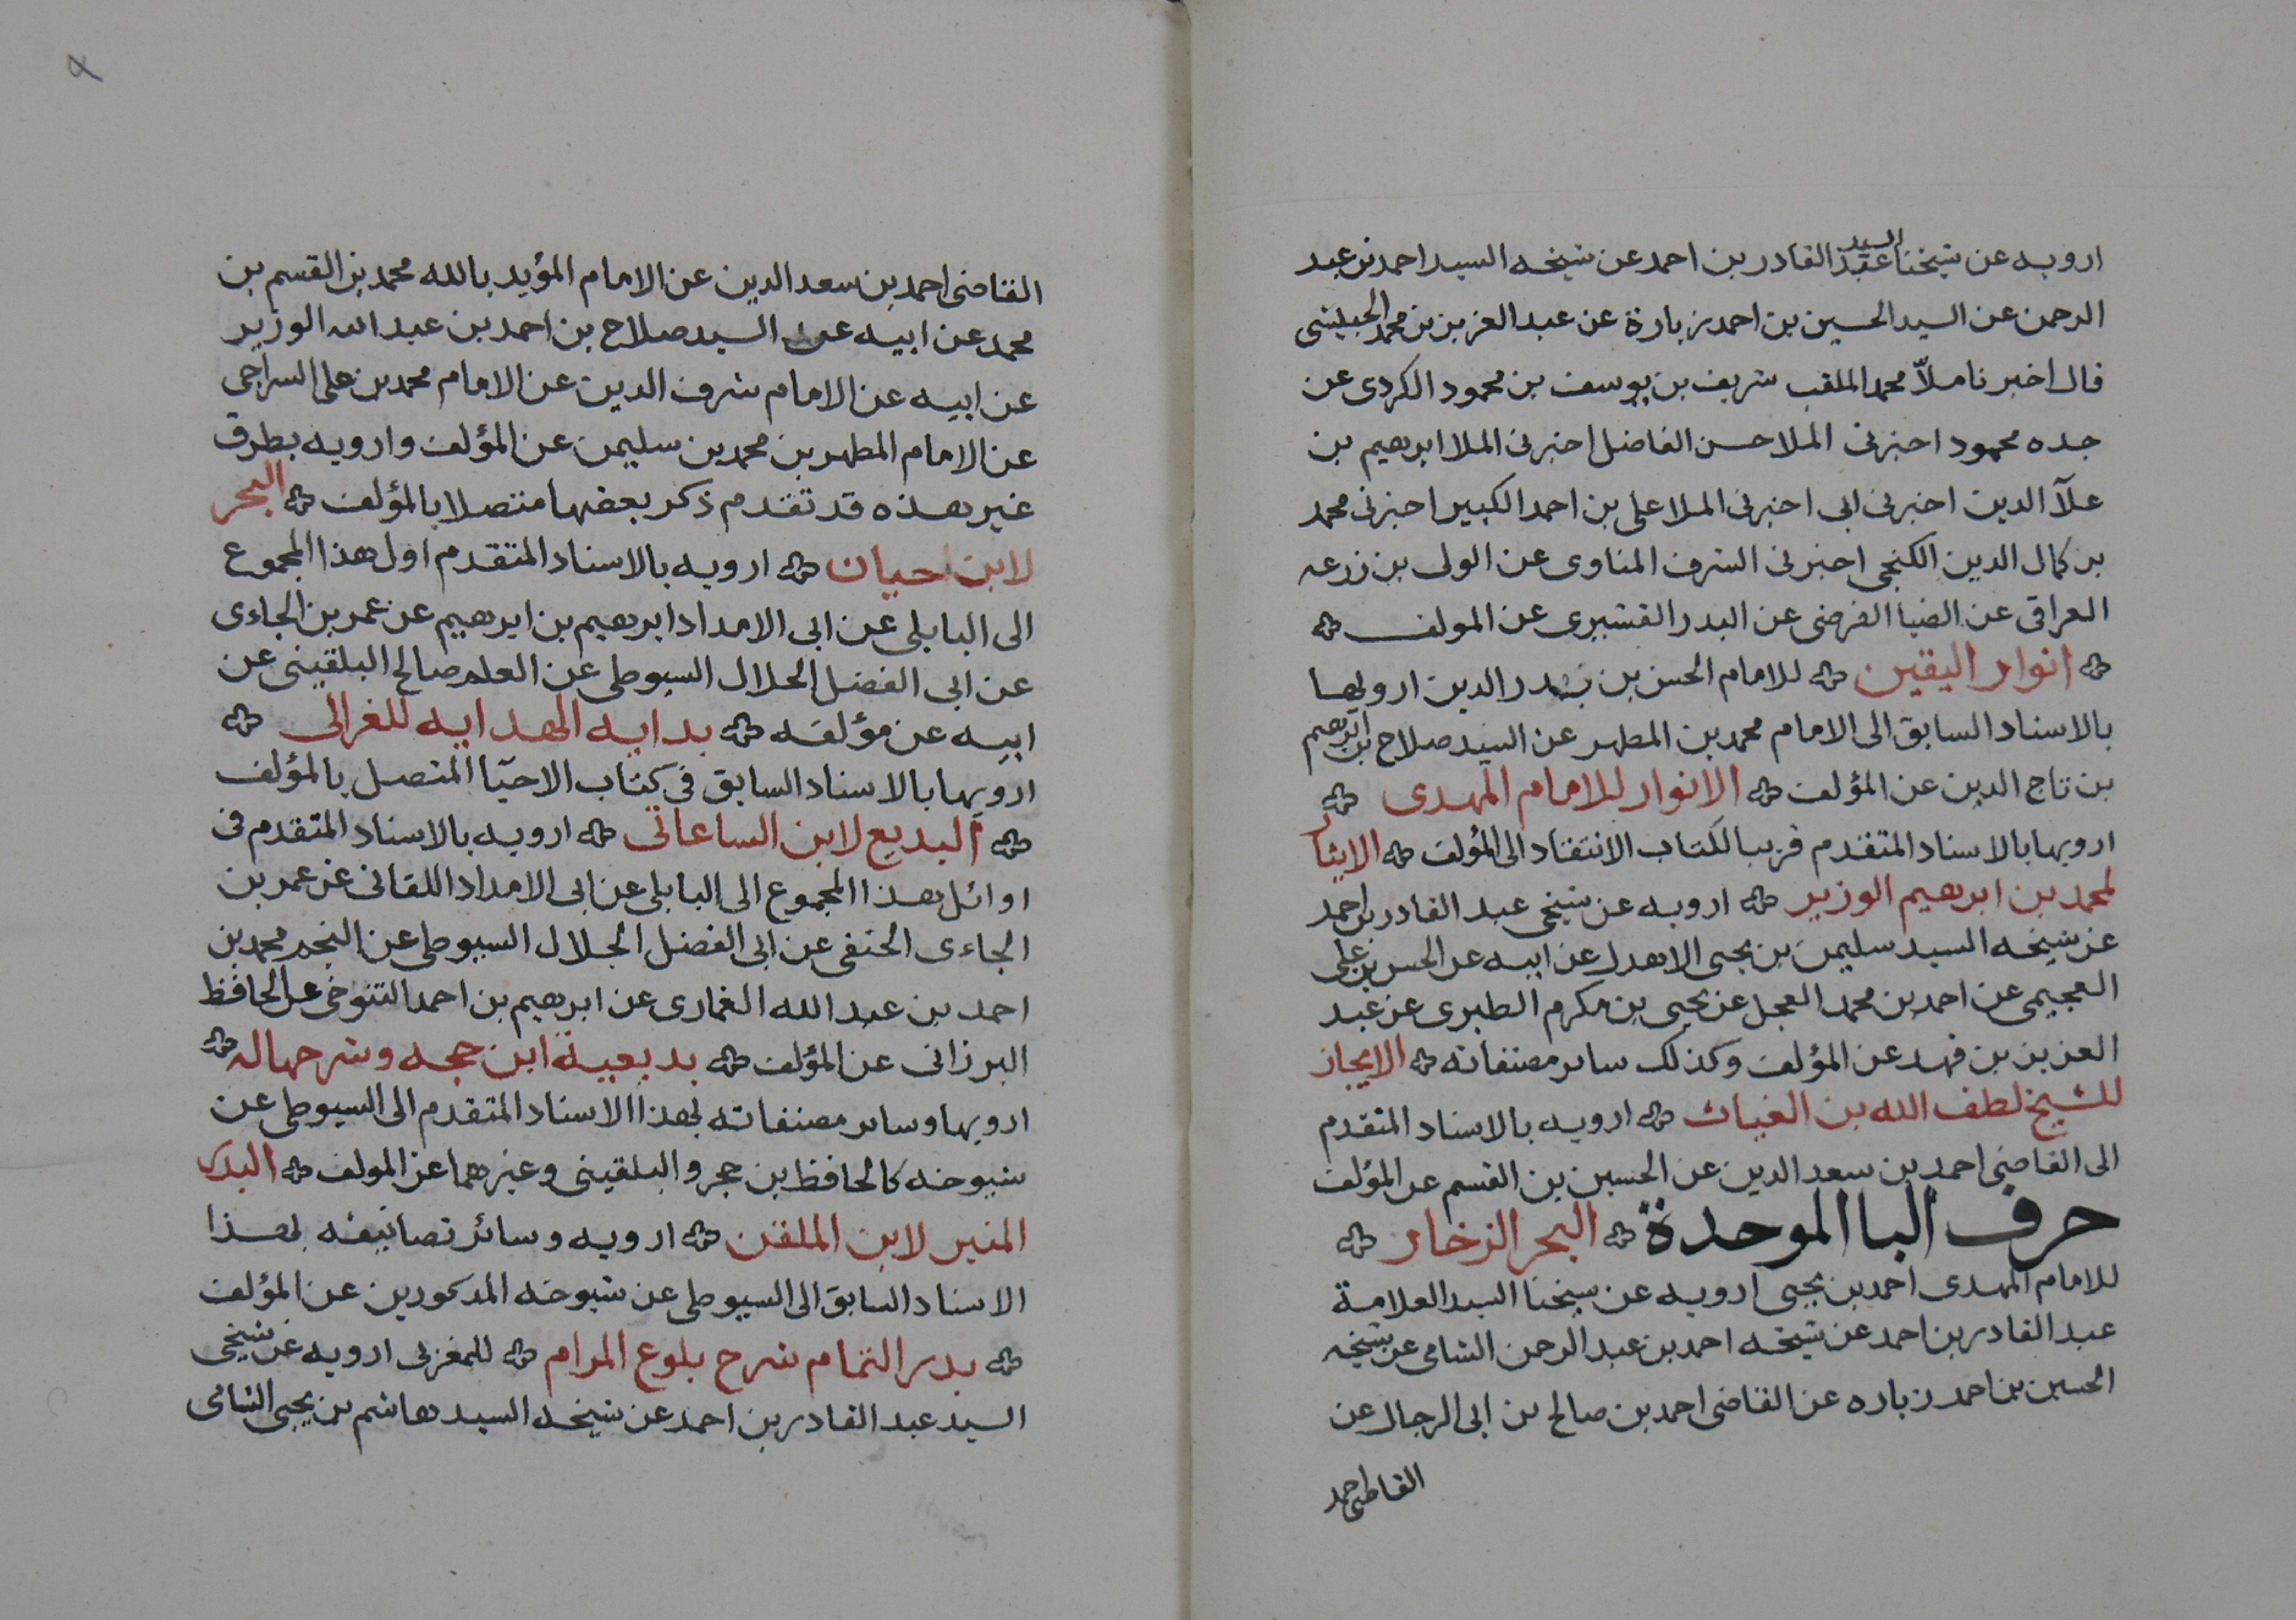 ارويه عن شيخنا السيد عبد القادر بن احمد عن شيخه السيد احمد بن عبد
الرحمن عن السيد الحسين بن احمد زبارة عن عبد العزيز بن محمد الحبيشى
قال اخبرنا ملّا محمد الملقب شريف بن يوسف بن محمود الكردى عن
جده محمود اخبرنى الملا حسن الفاضل اخبرنى الملا ابرهيم بن
علآ الدين اخبرنى ابى اخبرنى الملا على بن احمد الكبير اخبرنى محمد
بن كمال الدين الكنجى اخبرنى الشرف المناوى عن الولى بن زرعه
العراقى عن الضيا القرضى عن البدر القشيرى عن المولف
انوار اليقين للامام الحسن بن بدر الدين ارويها
بالاسناد السابق الى الامام محمد بن المطهر عن السيد صلاح بن ابرهيم
بن تاج الدين عن المؤلف الانوار للامام المهدى
ارويها بالاسناد المتقدم قريبا لكتاب الانتقاد الى المؤلف الايثار
لمحمد بن ابرهيم الوزير ارويه عن شيخى عبد القادر بن احمد
عن شيخه السيد سليمن بن يحيى الاهدل عن ابيه عن الحسن بن على
العجيمى عن احمد بن محمد العجل عن يحيى بن مكرم الطبرى عن عبد
العزيز بن فهد عن المؤلف وكذلك ساىر مصنفاته الايجاز
للشيخ لطف الله بن الغياث ارويه بالاسناد المتقدم
الى القاضى احمد بن سعد الدين عن الحسين بن القسم عن المؤلف
حرف البا الموحدة البحر الزخار
للامام المهدى احمد بن يحيى ارويه عن شيخنا السيد العلامة
عبد القادر بن احمد عن شيخه احمد بن عبد الرحمن الشامى عن شيخه
الحسين بن احمد زباره عن القاضى احمد بن صالح بن ابى الرجال عن
القاضى احمد
القاضى احمد بن سعد الدين عن الامام المؤيد بالله محمد بن القسم بن
محمد عن ابيه عن السيد صلاح بن احمد بن عبد الله الوزير
عن ابيه عن الامام شرف الدين عن الامام محمد بن على السراجى
عن الامام المطهر بن محمد بن سليمن عن المؤلف وارويه بطرق
غير هذه قد تقدم ذكر بعضها متصلا بالمؤلف البحر
لابن حيان ارويه بالاسناد المتقدم اول هذا المجموع
الى البابلى عن ابى الامداد ابرهيم بن ابرهيم عن عمر بن الجاءى
عن ابى الفضل الجلال السيوطى عن العلم صالح البلقينى عن
ابيه عن مؤلفه بدايه الهدايه للغزالى
ارويها بالاسناد السابق فى كتاب الاحيّا المتصل بالمؤلف
البديع لابن الساعاتى ارويه بالاسناد المتقدم فى
اوائل هذا المجموع الى البابلى عن ابى الامداد اللقانى عن عمر بن
الجاءى الحنفى عن ابى الفضل الجلال السيوطى عن النجم محمد بن
احمد بن عبد الله الغمارى عن ابرهيم بن احمد التنوخى عن الحافظ
البرزانى عن المؤلف بديعية ابن حجه وشرحها له
ارويها وساىر مصنفاته بهذا الاسناد المتقدم الى السيوطى عن
شيوخه كالحافظ بن حجر والبلقينى وغيرهما عن المولف البدر
المنير لابن الملقن ارويه وسائر تصانيفه بهذا
الاسناد السابق الى السيوطى عن شيوخه المذكورين عن المؤلف
بدر التمام شرح بلوغ المرام للمغربى ارويه عن شيخى
السيد عبد القادر بن احمد عن شيخه السيد هاشم بن يحيى الشامى